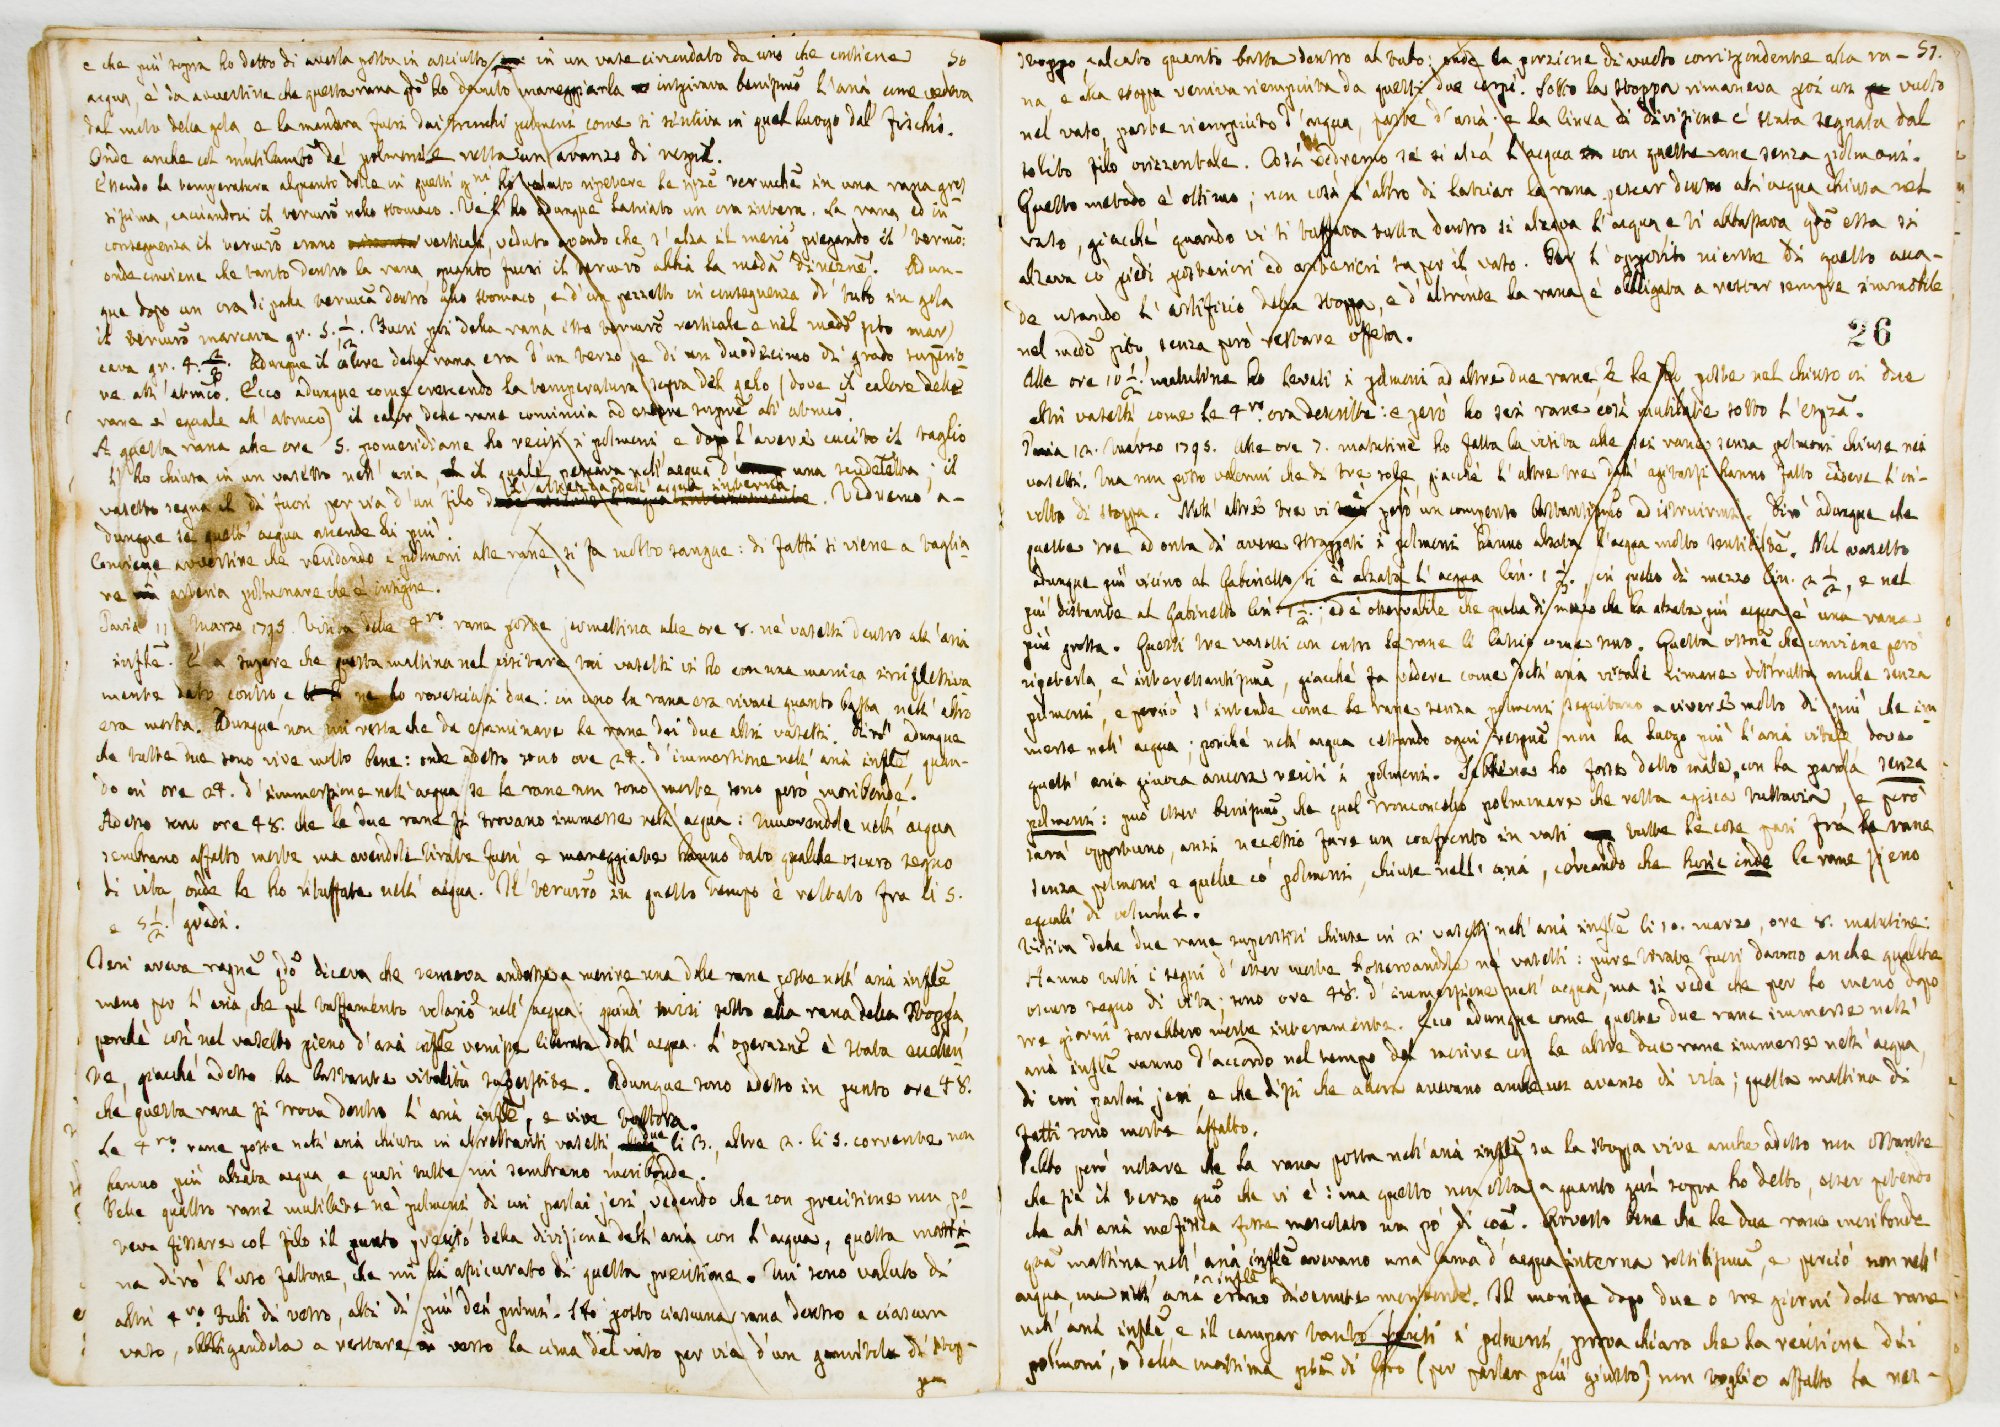 50
e che più sopra ho detto di averla posta in asciutto in un vase circondato da uno che contiene
acqua, è da avvertire che questa rana qdo ho dovuto maneggiarla inspirava benissimo l'aria come vedeva
dal moto della gola, e la mandava fuori dai tronchi polmoni come si sentiva in quel luogo dal fischio.
Onde anche col mutilamto de' polmoni le resta un avanzo di respir.
Essendo la temperatura alquanto dolce in questi gni ho voluto ripetere le spze termiche in una rana gros
sissima, cacciandosi il termro nello stomaco. Ve l'ho adunque lasciato un ora intera. La rana ed in
conseguenza il termro erano verticali, veduto avendo che s'alza il merio piegando il termo:
onde conviene che tanto dentro la rana quanto fuori il termro abbia la meda direzne. Adun-
que dopo un ora di palla termica dentro allo stomaco, e d'un pezzetto in conseguenza di tubo in gola
il termro marcava gr. 5. 1/2. Fuori poi della rana, esso termro verticale e nel medo sito mar
cava gr. 4. Adunque il calore della rana era d'un terzo, e di un duodecimo di grado superio
re all'atmico. Ecco adunque come crescendo la temperatura sopra del gelo (dove il calore delle
rane è eguale all'atmico) il calor delle rane comincia ad essere supre all'atmico.
A questa rana alle ore 5. pomeridiane ho recisi i polmoni e dopo l'avervi cucito il taglio
l'ho chiusa in un vasetto nell'aria, il quale pescava nell'acqua d' una scudeletta; il
vasetto segna il di fuori per via d'un filo l'altezza dell'acqua interna. Vedremo a-
dunque se quest'acqua ascende di più.
Conviene avvertire che recidendo i polmoni alle rane, si fa molto sangue: di fatti si viene a taglia-
re arteria polmonare che è insigne.
Pavia 11. Marzo 1795. Visita delle 4ro rane poste jermattina alle ore 8. ne' vasetti dentro all'aria
inflle. È a sapere che questa mattina nel visitare tai vasetti vi ho con una manica irriflessiva
mente dato contro, e ne ho rovesciati due: in uno la rana era vivace quanto basta, nell'altro
era morta. Adunque non mi resta che da esaminare le rane dei due altri vasetti. Dirò adunque
che tutte due sono vive molto bene: onde adesso sono ore 24. d'immersione nell'aria inflle quan-
do in ore 24. d'immersione nell'acqua se le rane non sono morte, sono però moribonde.
Adesso sono ore 48. che le due rane si trovano immerse nell'acqua: Muovendole nell'acqua
sembrano affatto morte ma avendole tirate fuori e maneggiate hanno dato qualche oscuro segno
di vita, onde le ho rituffate nell'acqua. Il termro in questo tempo è restato fra li 5.
e 5 1/2 gradi.
Jeri aveva ragne qdo diceva che temeva andasse a morire una delle rane poste nell'aria inflle,
meno per l'aria, che pel tuffamento volario nell'acqua: quindi misi sotto alla rana della stoppa,
perchè così nel vasetto pieno d'aria inflle venisse liberata dall'acqua. L'operazne è stata eccellen
te, giacchè adesso ha bastante vitalità superstite. Adunque sono adesso in punto ore 48.
che questa rana si trova dentro l'aria inflle, e vive tuttora.
Le 4ro rane poste nell'aria chiusa in altrettanti vasetti, due li 3., altre 2. li 5. corrente non
hanno più alzata acqua, e quasi tutte mi sembrano moribonde.
Delle quattro rane mutilate ne' polmoni di cui parlai jeri, vedendo che con precisione non po-
teva fissare col filo il punto preciso della divisione dell'aria con l'acqua, questa matti-
na dirò l'uso fattone, che mi ha assicurato di questa precisione. Mi sono valuto di
altri 4ro tubi di vetro, alti di più dei primi. Ho posto ciascuna rana dentro a ciascun
vaso, obbligandola a restare verso la cima del vaso per via d'un gomitolo di stop-
pa
57.
stoppo, calcato quanto basta dentro al tubo: onde la porzione di vuoto corrispondente alla ra-
na, e alla stoppa veniva riempiuta da questi due corpi. Sotto la stoppa rimaneva poi un vuoto
nel vaso, parte riempiuto d'acqua, parte d'aria: e la linea di divisione è stata segnata dal
solito filo orizzontale. Così vedremo se si alza l'acqua con queste rane senza polmoni.
Questo metodo è ottimo; non così l'altro di lasciar la rana pescar dentro all'acqua chiusa nel
vaso, giacchè quando vi si tuffava tutta dentro si alzava l'acqua e si abbassava qdo essa si
alzava co' piedi posteriori ed anteriori su per il vaso. Per l'opposito niente di questo acca-
de usando l'artificio della stoppa, e d'altronde la rana è obbligata a restar sempre immobile
nel medo sito, senza però restare offesa.
26
Alle ore 10 1/2 matutine ho levati i polmoni ad altre due rane e le ho poste nel chiuso in due
altri vasetti come le 4ro ora descritte: e però ho sei rane così mutilate sotto l'espza.
Pavia 12. Marzo 1795. Alle ore 7. matutine ho fatta la visita alle sei rane senza polmoni chiuse nei
vasetti. Ma non posso valermi che di tre sole, giacchè l'altre tre dall'agitarsi hanno fatto cadere l'in-
volto di stoppa. Nell'altre tre vi è però un compenso bastantissimo ad istruirmi. Dirò adunque che
queste tre ad onta di avere strappati i polmoni hanno alzata l'acqua molto sensibilte. Nel vasetto
adunque più vicino al Gabinetto si è alzata l'acqua lin. 1 1/2. in quello di mezzo lin. 2 1/2, e nel
più distante al Gabinetto lin. 1/2.; ed è osservabile che quella di mezzo che ha alzata più acqua è una rana
più grossa. Questi tre vasetti con entro le rane li lascio come sono. Questa ossne che conviene però
ripeterla, è interessantissima, giacchè fa vedere come dell'aria vitale rimane distrutta anche senza
polmoni, e perciò s'intende come le rane senza polmoni seguitano a vivere molto di più che im
merse nell'acqua; perchè nell'acqua cessando ogni respne non ha luogo più l'aria vitale dove
quest'aria giova ancora recisi i polmoni. Sebbene ho forse detto male con la parola senza
polmoni: può esser benissimo, che quel tronconcello polmonare che resta agisca tuttavia, e però
sarà opportuno, anzi necessio fare un confronto in vasi tutte le cose pari fra le rane
senza polmoni e quelle co' polmoni, chiuse nell'aria, cercando che hinc inde le rane sieno
eguali di volume.
Visita delle due rane superstiti chiuse in 2 vasetti nell'aria inflle li 10. marzo, ore 8. matutine:
Hanno tutti i segni d'esser morte osservandole ne' vasetti: pure tirate fuori danno anche qualche
oscuro segno di vita; sono ore 48. d'immersione nell'acqua, ma si vede che per lo meno dopo
tre giorni sarebbero morte interamente. Ecco adunque come queste due rane immerse nell'
aria inflle vanno d'accordo nel tempo del morire con le altre due rane immerse nell'acqua,
di cui parlai jeri e che dissi che allora avevano anche un avanzo di vita; questa mattina di
fatti sono morte affatto.
Debbo però notare che la rana posta nell'aria inflle su la stoppa vive anche adesso non ostante
che sia il terzo gno che vi è: ma questo non osta a quanto quì sopra ho detto, esser potendo
che all'aria mefitica fosse mescolato un pò di coe. Avverto bene che le due rane moribonde
qta mattina nell'aria inflle avevano una lama d'acqua interna sottilissima, e perciò non nell'
acqua, ma nell'aria inflle erano divenute moribonde. Il morire dopo due o tre giorni delle rane
nell'aria inflle, e il campar tanto recisi i polmoni, prova chiaro che la recisione dei
polmoni, o della massima pte di loro (per parlar più giusto) non toglie affatto la res-